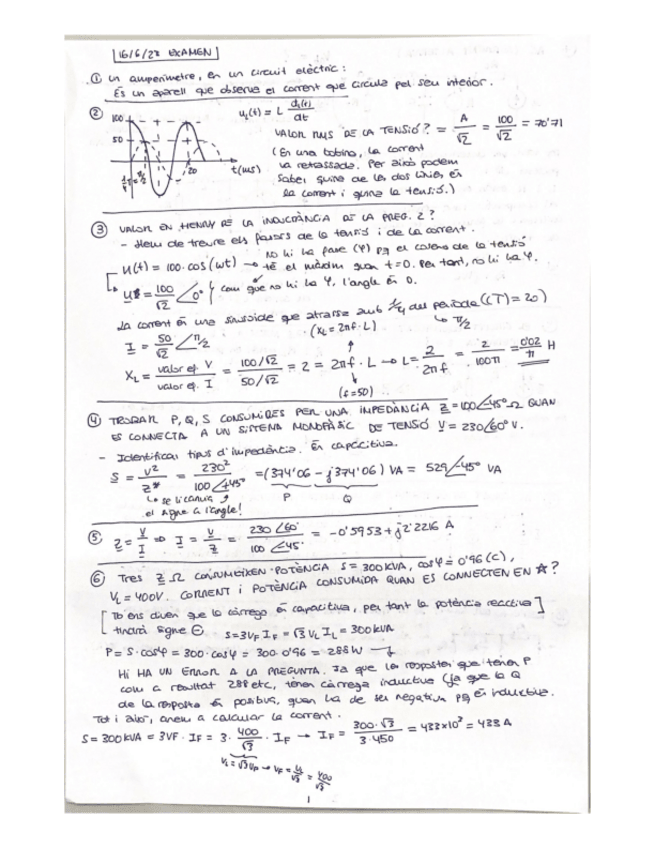 16/6/22 EXAMEN
① Un amperímetre, en un circuit elèctric:
És un aparell que observa el corrent que circula pel seu interior.
②
100
50
20
t(ms)
u₁(t) = L di(t)/dt
VALOR RMS DE LA TENSIÓ? = A/√2 = 100/√2 = 70'71
(En una bobina, la corrent
va retrassada. Per això podem
saber quina de les dos línies és
la corrent i quina la tensió.)
③ VALOR EN HENRY DE LA INDUCTÀNCIA DE LA PREG. 2?
- Hem de treure els fasors de la tensió i de la corrent.
u(t) = 100·cos(ωt) → no hi ha fase (φ) pq el coseno de la tensió
té el màxim quan t=0. Per tant, no hi ha φ.
U = 100/√2 ∠0° com que no hi ha φ, l'angle és 0.
La corrent és una sinusoide que atrassa amb 1/4 del període (T = 20)
π/2
I = 50/√2 ∠π/2
(XL = 2πf·L)
XL = valor ef. V / valor ef. I = 100/√2 / 50/√2 = 2 = 2πf·L → L = 2/2πf = 2/100π = 0'02/π H
(f=50)
④ TROBAR P, Q, S CONSUMIDES PER UNA IMPEDÀNCIA Z = 100∠-45° Ω QUAN
ES CONNECTA A UN SISTEMA MONOFÀSIC DE TENSIÓ V = 230∠60° V.
- Identificar tipus d'impedància. És capacitiva.
S = V²/Z* = 230²/100∠+45° = (374'06 - j374'06) VA = 529∠-45° VA
P Q
se li canvia
el signe a l'angle!
⑤ Z = V/I ⇒ I = V/Z = 230∠60°/100∠-45° = -0'5953 + j2'2216 A
⑥ TRES Z Ω CONSUMEIXEN POTÈNCIA S = 300 KVA, cosφ = 0'96 (C),
VL = 400V. CORRENT I POTÈNCIA CONSUMIDA QUAN ES CONNECTEN EN ☆?
[ens diuen que la càrrega és capacitiva, per tant la potència reactiva]
tindrà signe ⊖ S = 3VF IF = √3 VL IL = 300 kVA
P = S·cosφ = 300·cosφ = 300·0'96 = 288 W
HI HA UN ERROR A LA PREGUNTA. Ja que les respostes que tenen P
com a resultat 288 etc, tenen càrrega inductiva (ja que la Q
de la resposta és positiva, quan ha de ser negativa pq és inductiva.
Tot i això, anem a calcular la corrent.
S = 300 KVA = 3VF·IF = 3·400/√3·IF → IF = 300·√3/3·450 = 433×10³ = 433 A
VL = √3 VF → VF = VL/√3 = 400/√3
1